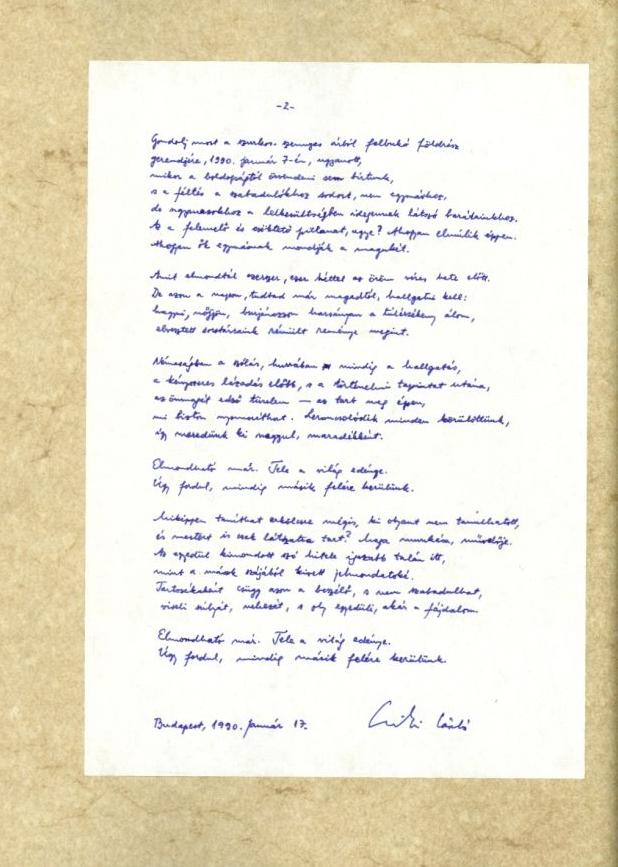 -2-
Gondolj most a szurkos szennyes árból felbukó földrész
gerendjére, 1990. január 7-én, ugyanott,
mikor a boldogságtól örvendeni sem bírtunk,
s a féltés a szabadulókhoz sodort, nem egymáshoz,
de ugyanazokhoz a lelkesültségben idegennek látszó barátainkhoz.
Az a felemelő és szédítő pillanat, ugye? Ahogyan elmúlik éppen.
Ahogyan ők egymásnak mondják a magukét.
Amit elmondtál egyszer, ezer héttel az öröm véres hete előtt.
De azon a napon, tudtad már magadtól, hallgatni kell:
hagyni, nőjjön, burjánozzon harsányan a túlérzékeny álom,
elveszett sorstársaink rémült reménye megint.
Némaságban a szólás, hurrában mindig a hallgatás,
a kényszeres lázadás előbb, s a történelmi tapintat utána,
az önmagát edző türelem — az tart meg épen,
mi biztos nyomoríthat. Leroncsolódik minden körülöttünk,
így meredünk ki nagyul, maradékként.
Elmondható már. Tele a világ edénye.
Úgy fordul, mindig másik felére kerülünk.
Miképpen taníthat erkölcsre mégis, ki olyant nem tanulhatott,
és mestert is csak látszatra tart? Maga munkása, művelője.
Az egyedül kimondott szó hitele igazabb talán itt,
mint a mások szájából kivett jelmondatoké.
Tartozékaként csügg azon a beszélő, s nem szabadulhat,
viseli súlyát, nehezét, s oly egyedüli, akár a fájdalom
Elmondható már. Tele a világ edénye.
Úgy fordul, mindig másik felére kerülünk.
Budapest, 1990. január 17. Csiki László